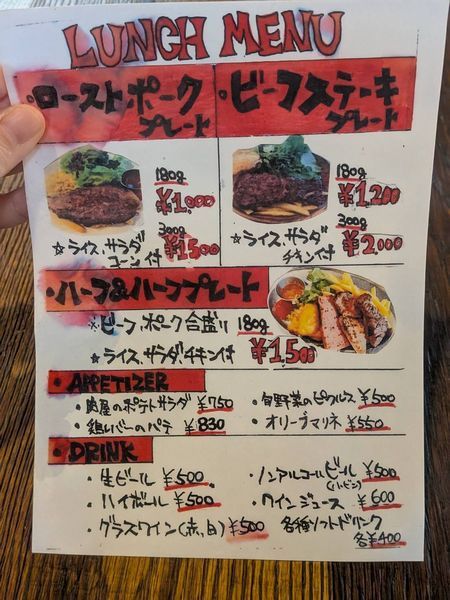 LUNCH MENU
・ローストポーク
プレート
・ビーフステーキ
プレート
180g
¥1,000
300g
¥1500
☆ライス、サラダ
コーン付
180g
¥1,200
300g
¥2,000
☆ライス、サラダ
チキン付
・ハーフ&ハーフプレート
※ビーフ、ポーク合盛り 180g
☆ライス、サラダチキン付 ¥1,500
・APPETIZER
・肉屋のポテトサラダ ¥750
・鶏レバーのパテ ¥830
・旬野菜のピクルス ¥500
・オリーブマリネ ¥550
・DRINK
・生ビール ¥500
・ハイボール ¥500
・グラスワイン(赤,白) ¥500
・ノンアルコールビール ¥500
・ワインジュース ¥600
各種ソフトドリンク
各¥400